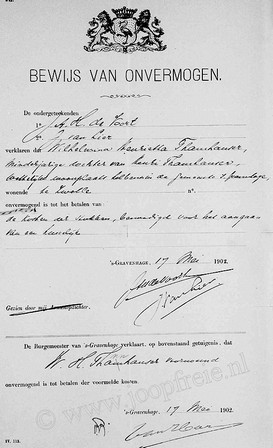 BEWIJS VAN ONVERMOGEN.
De ondergeteekenden
1e A. H. de Voort
2e J. van Lier
verklaren dat Wilhelmina Henrietta Thanhauser,
Minderjarige dochter van Thanhauser,
de gemeente
wonende te Zwolle nº.
onvermogend is tot het betalen van
de kosten der stukken, benoodigd voor het aangaan
van een huwelijk
's-Gravenhage, 17 Mei 1902.
Gezien door mij
De Burgemeester van 's-Gravenhage verklaart, op bovenstaand getuigenis, dat
W. H. Thanhauser voornoemd
onvermogend is tot betalen der voormelde kosten.
's-Gravenhage, 17 Mei 1902.
www.joopfreie.nl